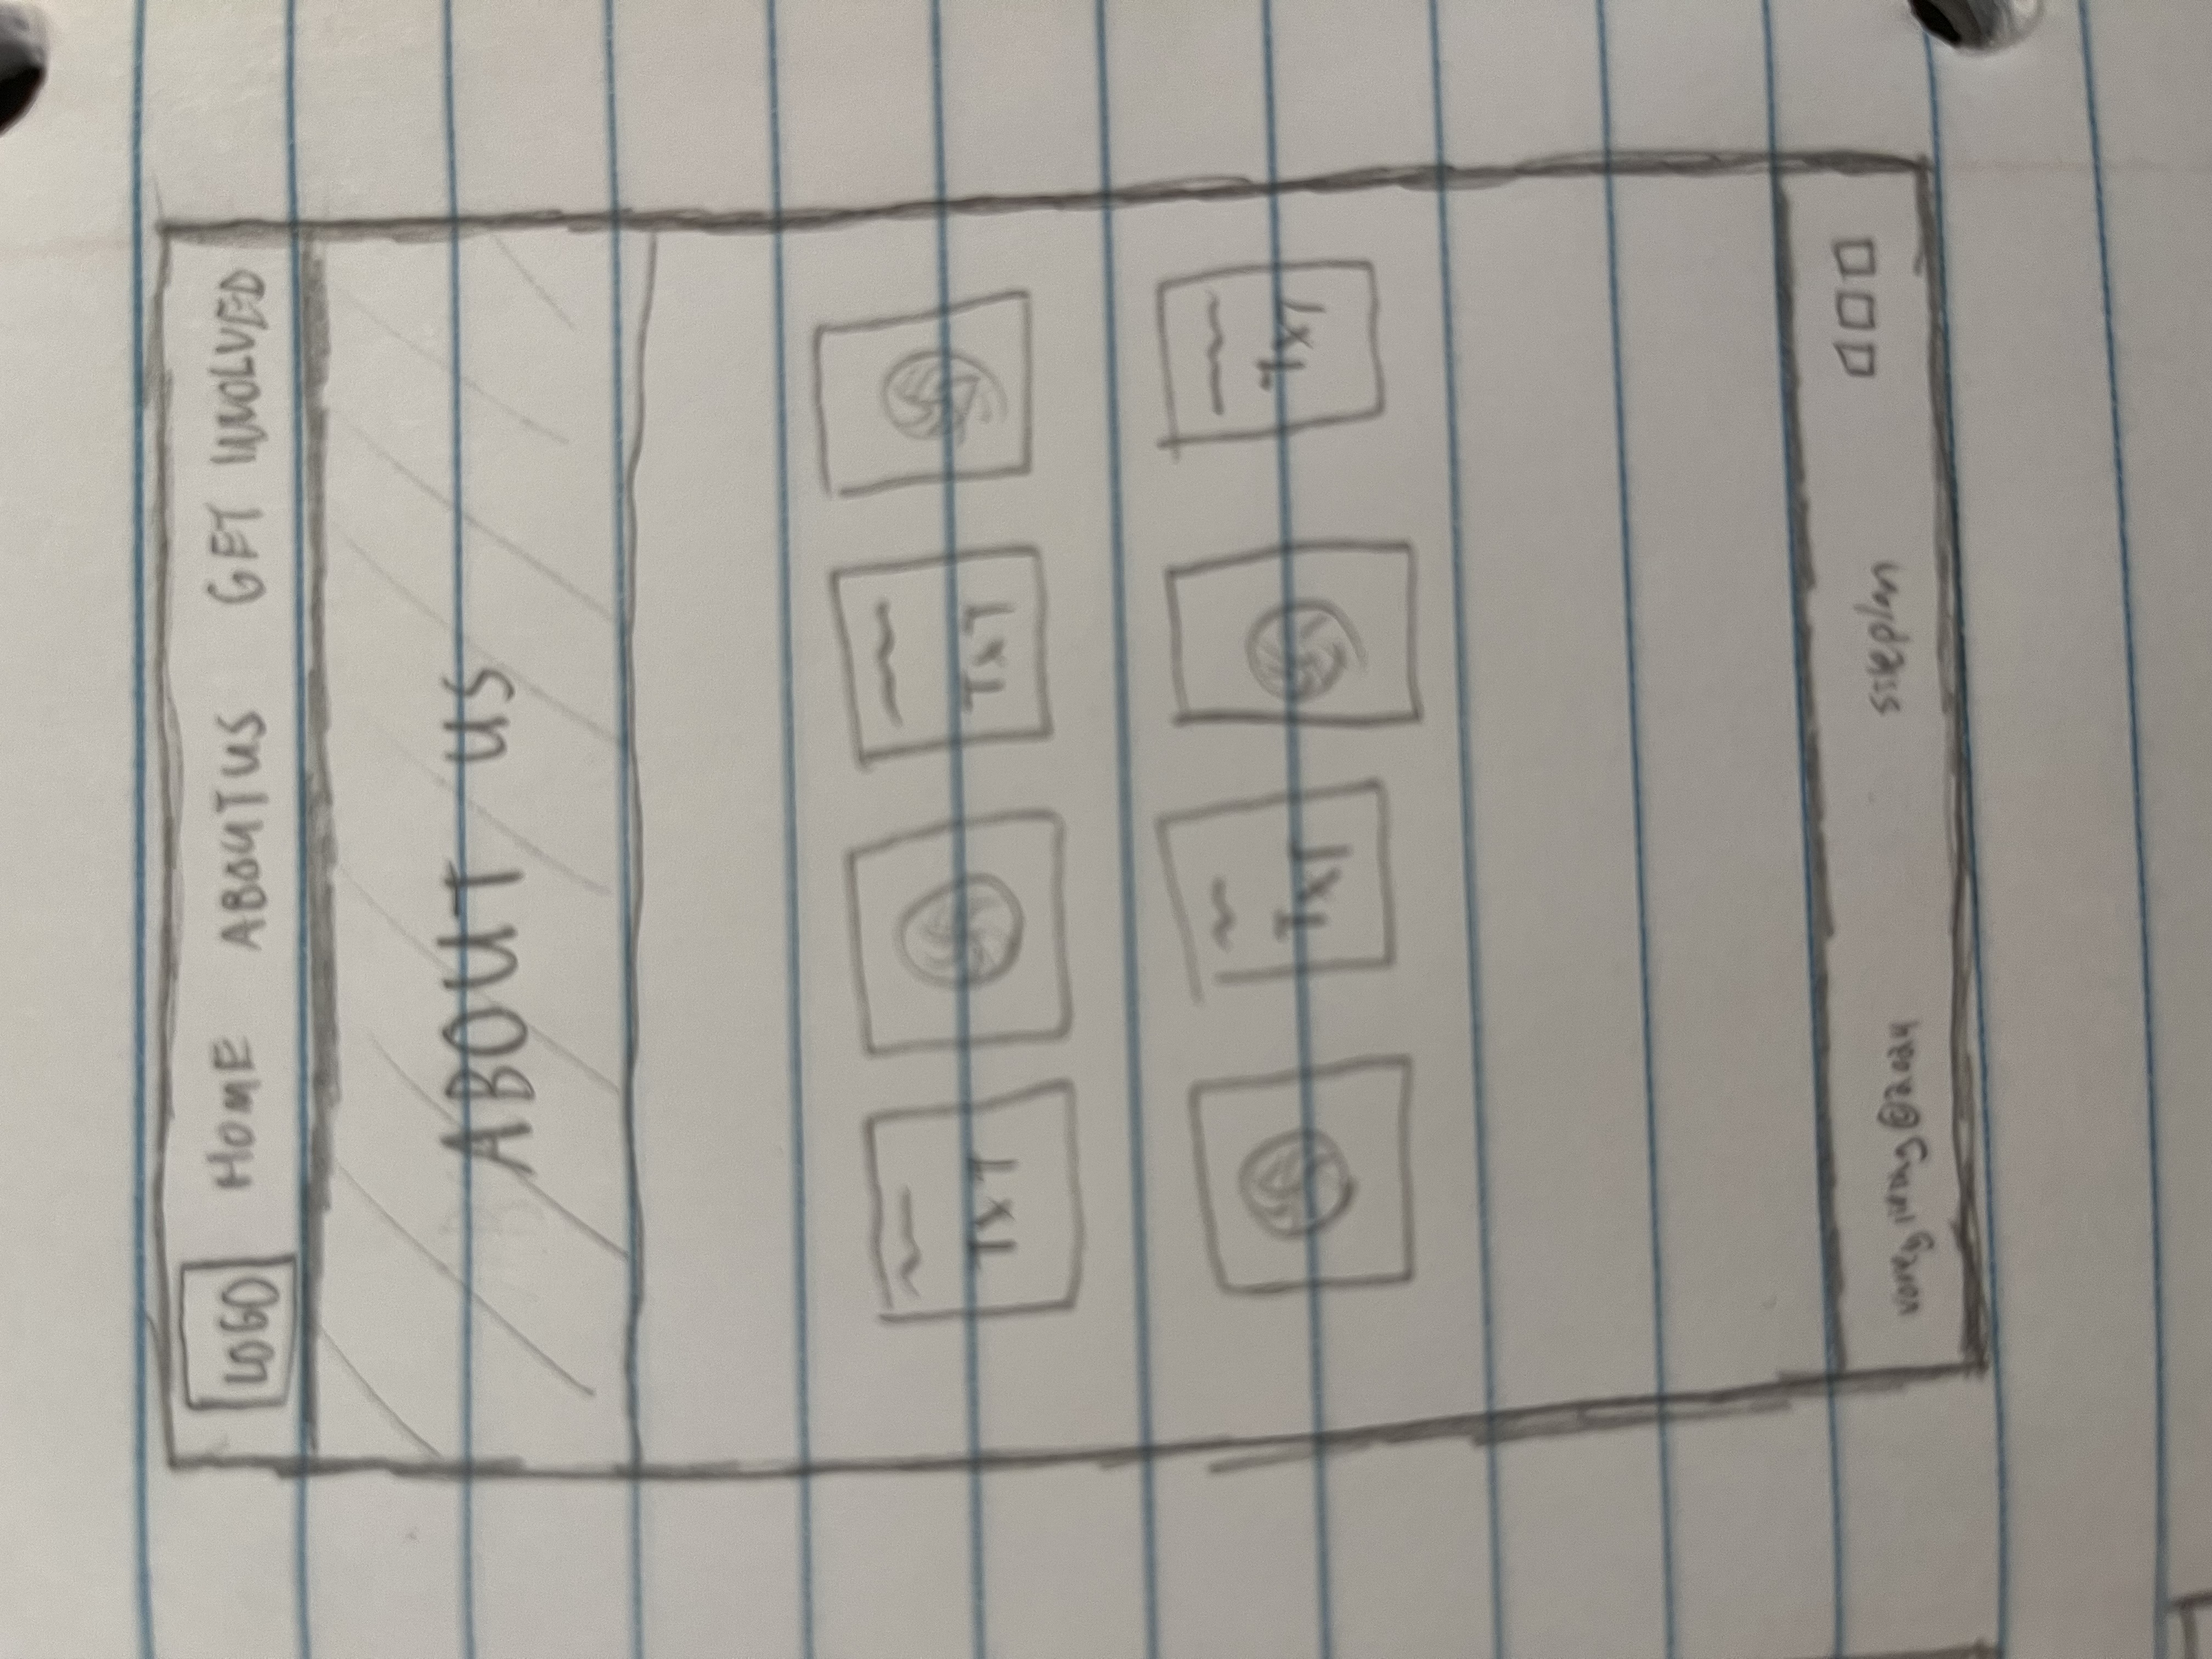 LOGO HOME ABOUT US GET INVOLVED
ABOUT US
TXT TXT
TXT TXT
@2024 siteplan